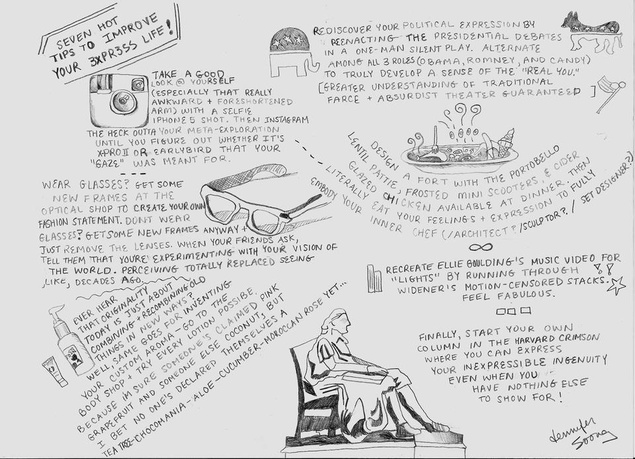 SEVEN HOT
TIPS TO IMPROVE
YOUR 3XPR3SS LIFE!
TAKE A GOOD
LOOK @ YOURSELF
(ESPECIALLY THAT REALLY
AWKWARD + FORESHORTENED
ARM) WITH A SELFIE
IPHONE 5 SHOT. THEN INSTAGRAM
THE HECK OUTTA YOUR META-EXPLORATION
UNTIL YOU FIGURE OUT WHETHER IT'S
X-PRO II OR EARLYBIRD THAT YOUR
"GAZE" WAS MEANT FOR.
WEAR GLASSES? GET SOME
NEW FRAMES AT THE
OPTICAL SHOP TO CREATE YOUR OWN
FASHION STATEMENT. DONT WEAR
GLASSES? GET SOME NEW FRAMES ANYWAY +
JUST REMOVE THE LENSES. WHEN YOUR FRIENDS ASK,
TELL THEM THAT YOU'RE EXPERIMENTING WITH YOUR VISION OF
THE WORLD. PERCEIVING TOTALLY REPLACED SEEING
LIKE, DECADES AGO.
EVER HEAR
THAT ORIGINALITY
TODAY IS JUST ABOUT
COMBINING + RECOMBINING OLD
THINGS IN NEW WAYS?
WELL, SAME GOES FOR INVENTING
YOUR CUSTOM AROMA. GO TO THE
BODY SHOP + TRY EVERY LOTION POSSIBLE.
BECAUSE I'M SURE SOMEONE'S CLAIMED PINK
GRAPEFRUIT AND SOMEONE ELSE COCONUT, BUT
I BET NO ONE'S DECLARED THEMSELVES A
TEA TREE-CHOCOMANIA-ALOE-CUCUMBER-MOROCCAN ROSE YET...
REDISCOVER YOUR POLITICAL EXPRESSION BY
REENACTING THE PRESIDENTIAL DEBATES
IN A ONE-MAN SILENT PLAY. ALTERNATE
AMONG ALL 3 ROLES (OBAMA, ROMNEY, AND CANDY)
TO TRULY DEVELOP A SENSE OF THE "REAL YOU."
[GREATER UNDERSTANDING OF TRADITIONAL
FARCE + ABSURDIST THEATER GUARANTEED]
DESIGN A FORT WITH THE PORTOBELLO
LENTIL PATTIE, FROSTED MINI SCOOTERS, & CIDER
GLAZED CHICKEN AVAILABLE AT DINNER. THEN
LITERALLY EAT YOUR FEELINGS + EXPRESSION TO FULLY
EMBODY YOUR INNER CHEF (/ARCHITECT?/SCULPTOR?/SET DESIGNER?)
RECREATE ELLIE GOULDING'S MUSIC VIDEO FOR
"LIGHTS" BY RUNNING THROUGH
WIDENER'S MOTION-CENSORED STACKS.
FEEL FABULOUS.
FINALLY, START YOUR OWN
COLUMN IN THE HARVARD CRIMSON
WHERE YOU CAN EXPRESS
YOUR INEXPRESSIBLE INGENUITY
EVEN WHEN YOU
HAVE NOTHING ELSE
TO SHOW FOR!
Jennifer
Soong